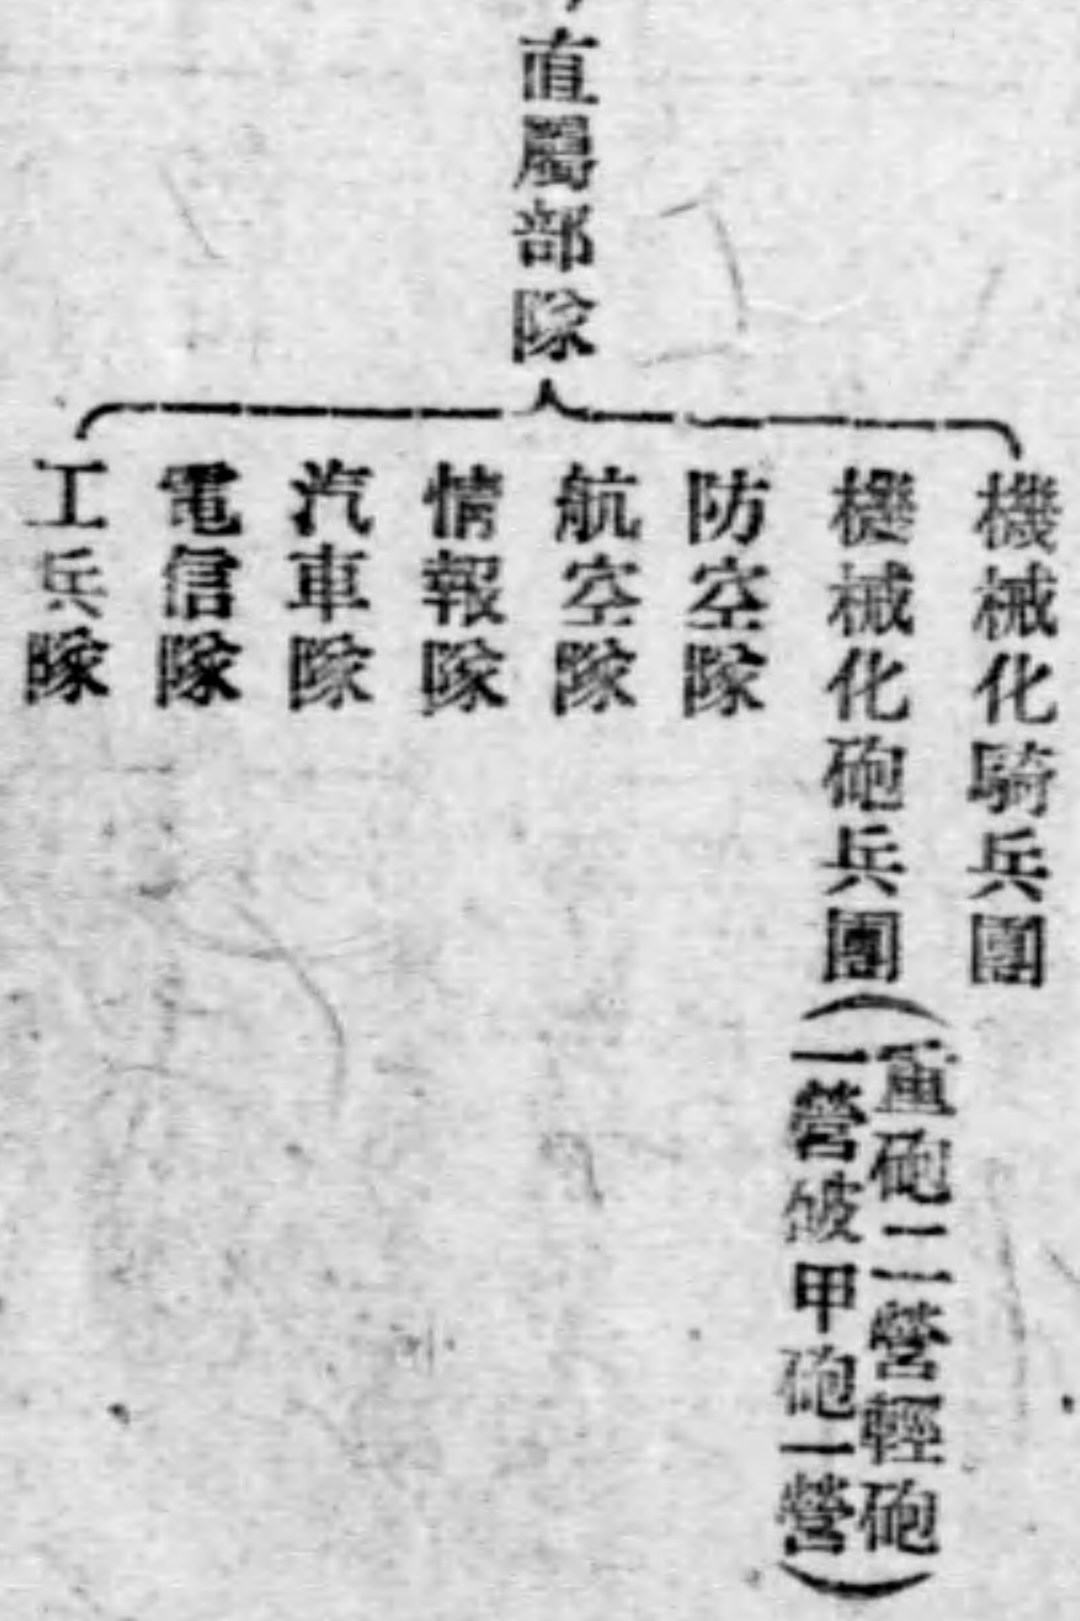 直屬部隊
機械化騎兵團
機械化砲兵團
(重砲二營輕砲
一營破甲砲一營)
防空隊
航空隊
情報隊
汽車隊
電信隊
工兵隊